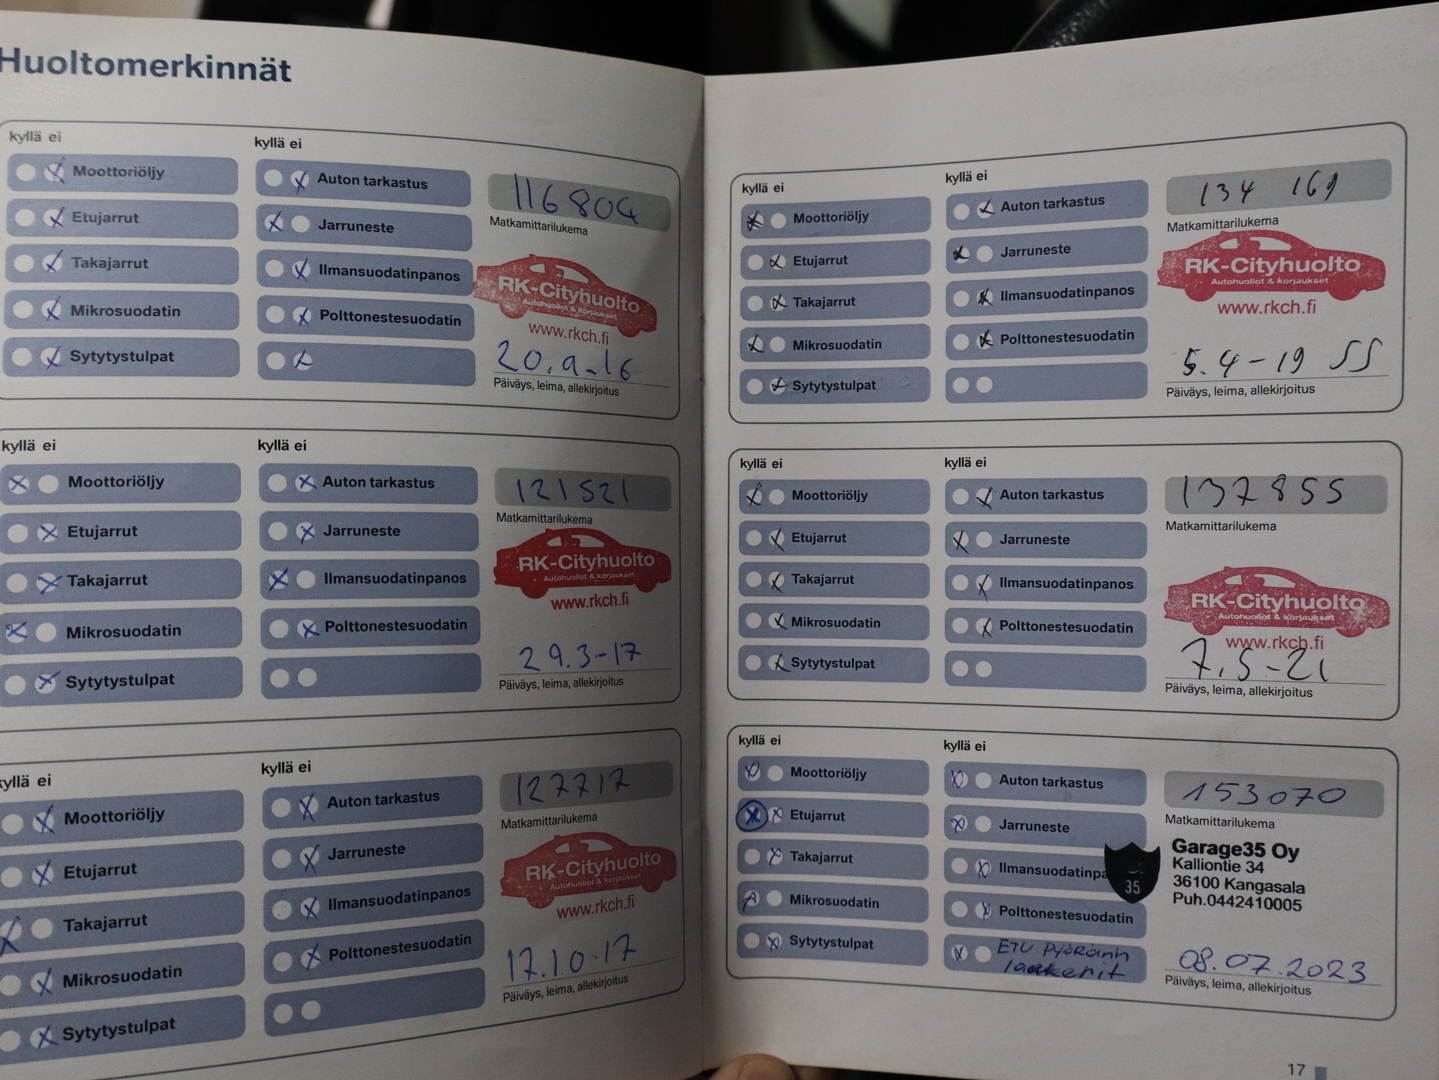 Huoltomerkinnät
kyllä ei
kyllä ei
Moottoriöljy
Auton tarkastus
116804
Etujarrut
Jarruneste
Matkamittarilukema
Takajarrut
Ilmansuodatinpanos
RK-Cityhuolto
Autohuollot & korjaukset
Mikrosuodatin
Polttonestesuodatin
www.rkch.fi
Sytytystulpat
20.9-16
Päiväys, leima, allekirjoitus
kyllä ei
kyllä ei
Moottoriöljy
Auton tarkastus
121521
Etujarrut
Jarruneste
Matkamittarilukema
Takajarrut
Ilmansuodatinpanos
RK-Cityhuolto
Autohuollot & korjaukset
www.rkch.fi
Mikrosuodatin
Polttonestesuodatin
29.3-17
Sytytystulpat
Päiväys, leima, allekirjoitus
kyllä ei
kyllä ei
Moottoriöljy
Auton tarkastus
127717
Etujarrut
Jarruneste
Matkamittarilukema
Takajarrut
Ilmansuodatinpanos
RK-Cityhuolto
Autohuollot & korjaukset
www.rkch.fi
Mikrosuodatin
Polttonestesuodatin
17.10.17
Sytytystulpat
Päiväys, leima, allekirjoitus
kyllä ei
kyllä ei
Moottoriöljy
Auton tarkastus
134 161
Etujarrut
Jarruneste
Matkamittarilukema
Takajarrut
Ilmansuodatinpanos
RK-Cityhuolto
Autohuollot & korjaukset
www.rkch.fi
Mikrosuodatin
Polttonestesuodatin
5.4-19 SS
Sytytystulpat
Päiväys, leima, allekirjoitus
kyllä ei
kyllä ei
Moottoriöljy
Auton tarkastus
137855
Etujarrut
Jarruneste
Matkamittarilukema
Takajarrut
Ilmansuodatinpanos
RK-Cityhuolto
Autohuollot & korjaukset
www.rkch.fi
Mikrosuodatin
Polttonestesuodatin
7.5-21
Sytytystulpat
Päiväys, leima, allekirjoitus
kyllä ei
kyllä ei
Moottoriöljy
Auton tarkastus
153070
Etujarrut
Jarruneste
Matkamittarilukema
Takajarrut
Ilmansuodatinpa
35
Garage35 Oy
Kalliontie 34
36100 Kangasala
Puh.0442410005
Mikrosuodatin
Polttonestesuodatin
Sytytystulpat
ETU pyöränn
laakerit
08.07.2023
Päiväys, leima, allekirjoitus
17